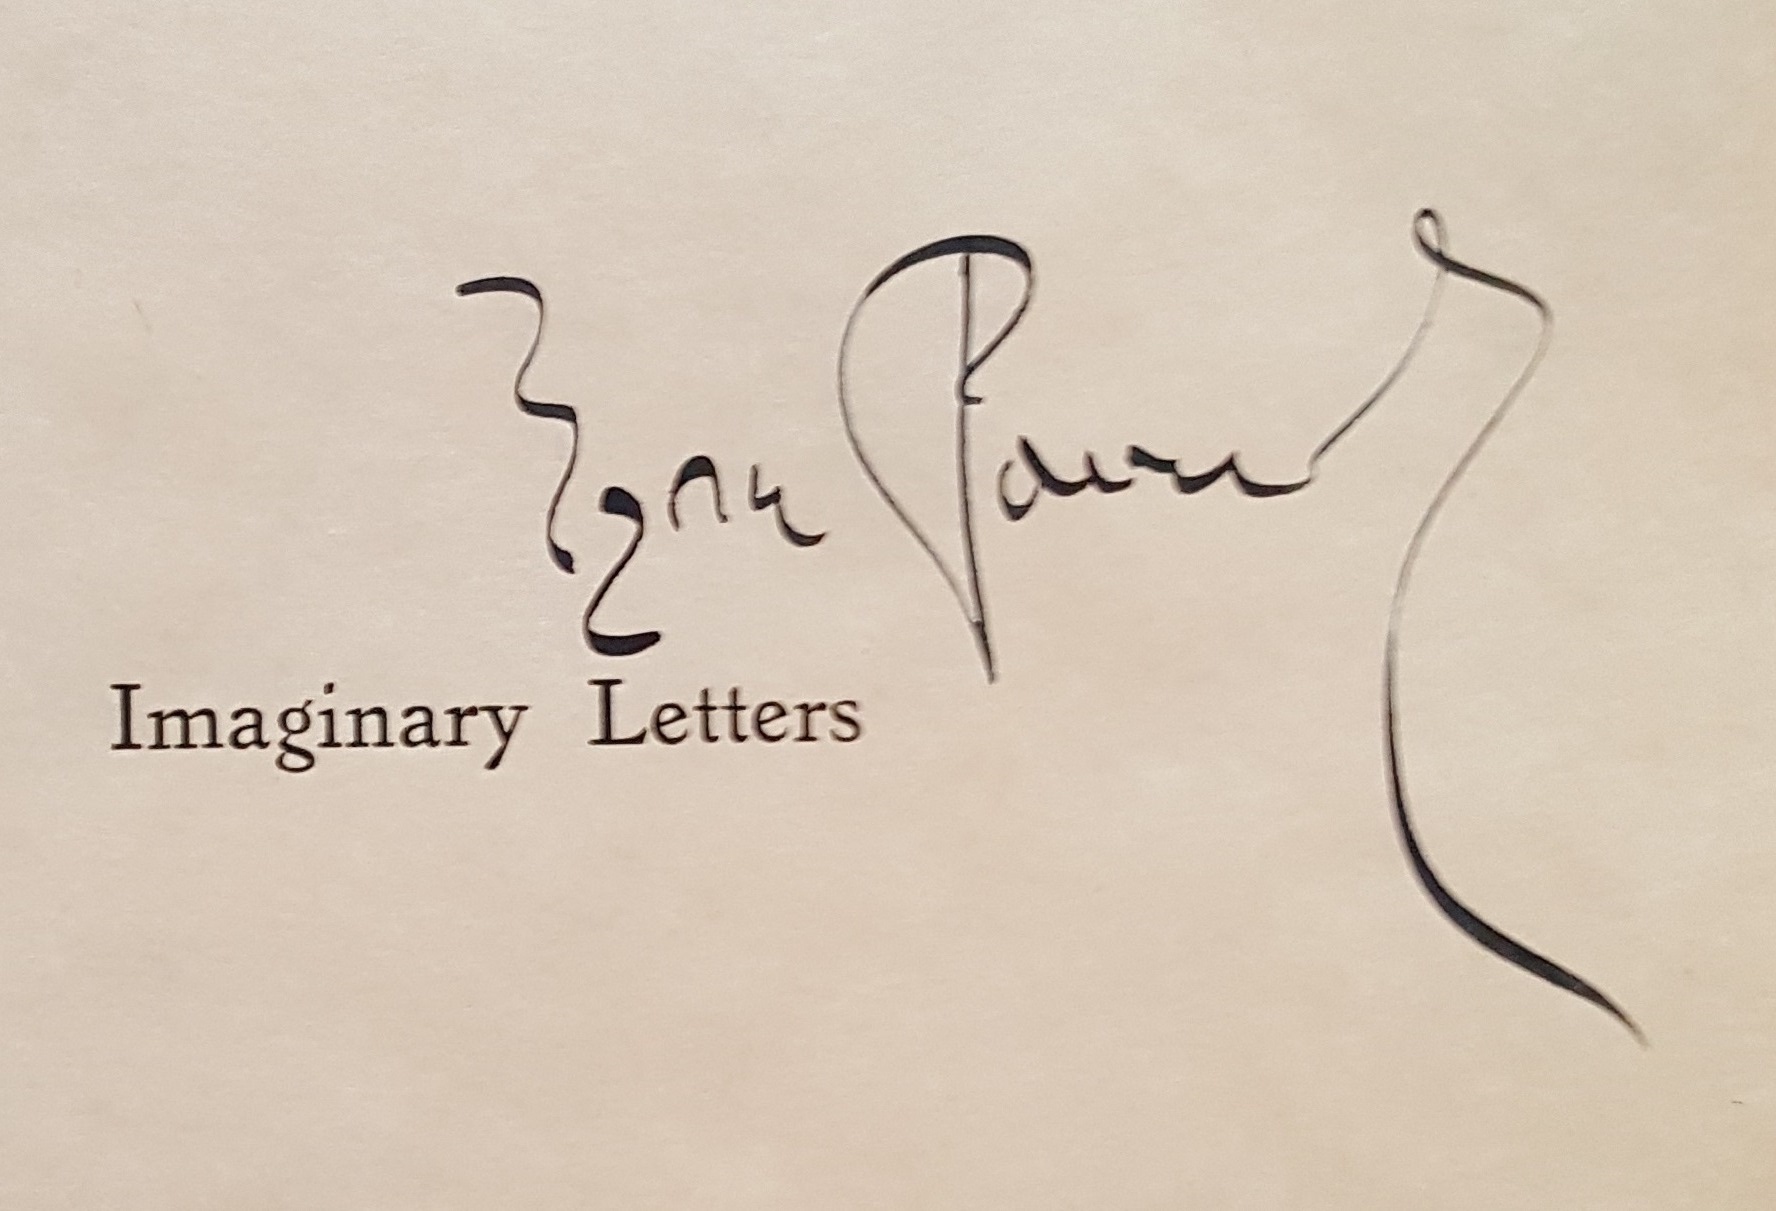 Ezra Pound
Imaginary Letters